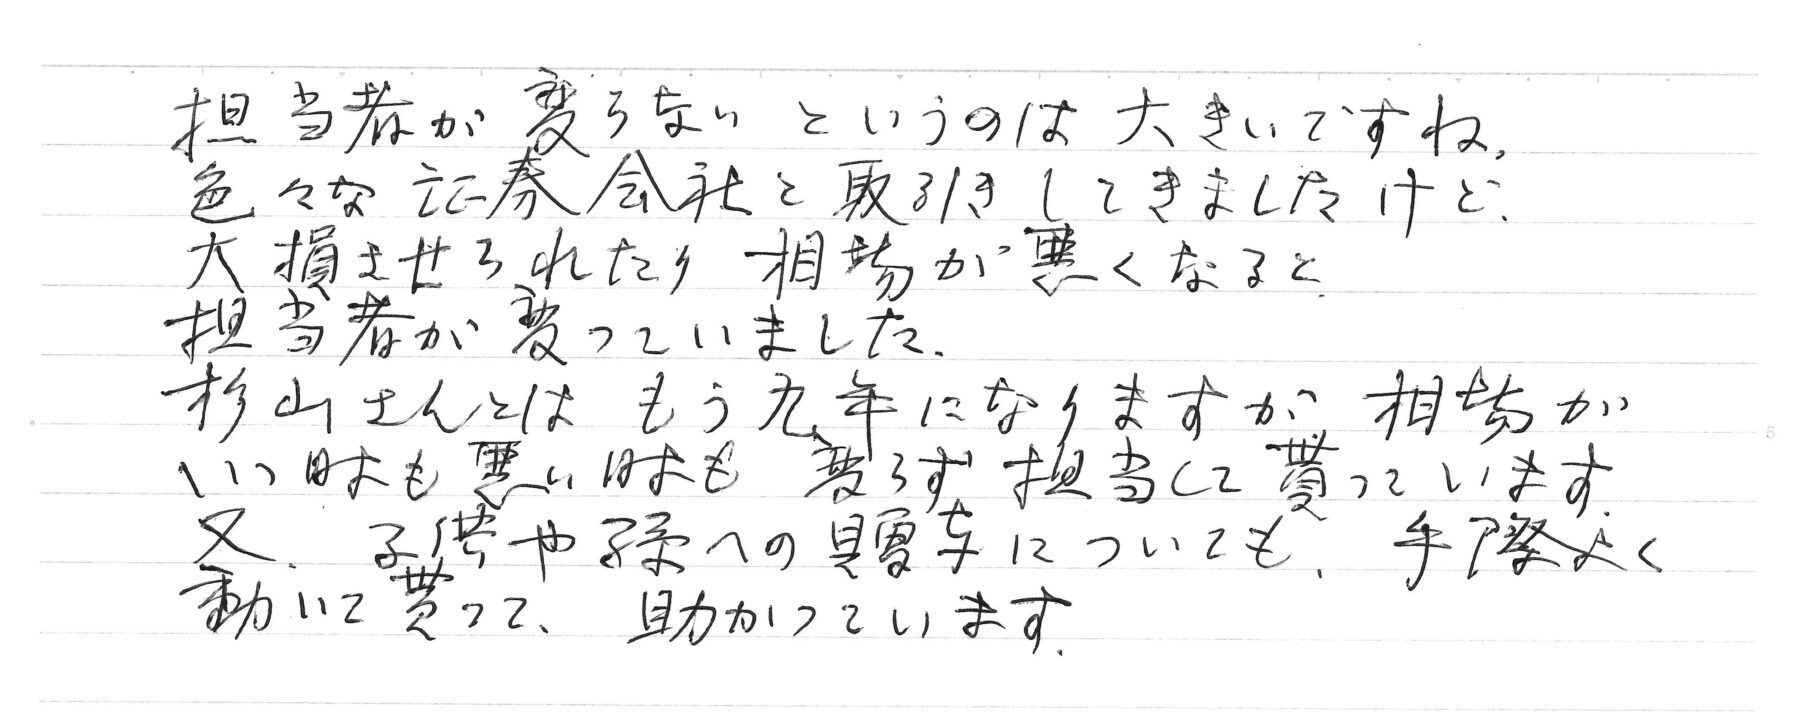 担当者が変らないというのは大きいですね。
色々な証券会社と取引きしてきましたけど、
大損させられたり相場が悪くなると
担当者が変っていました。
杉山さんとはもう九年になりますが相場が
いい時も悪い時も変らず担当して貰っています。
又、子供や孫への贈与についても、手際よく
動いて貰って、助かっています。
5